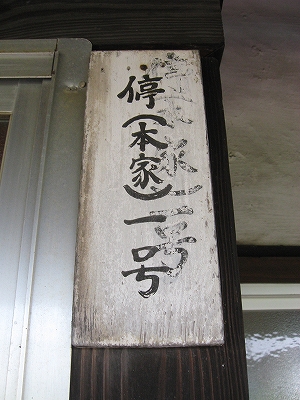 停（本家）一号